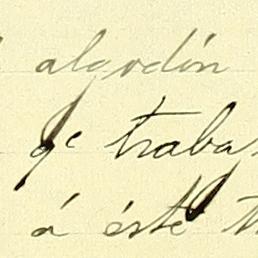 algodón
qᵉ traba
á éste